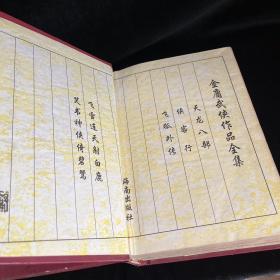 金庸武侠作品全集
天龙八部
侠客行
飞狐外传
海南出版社
飞雪连天射白鹿
笑书神侠倚碧鸳